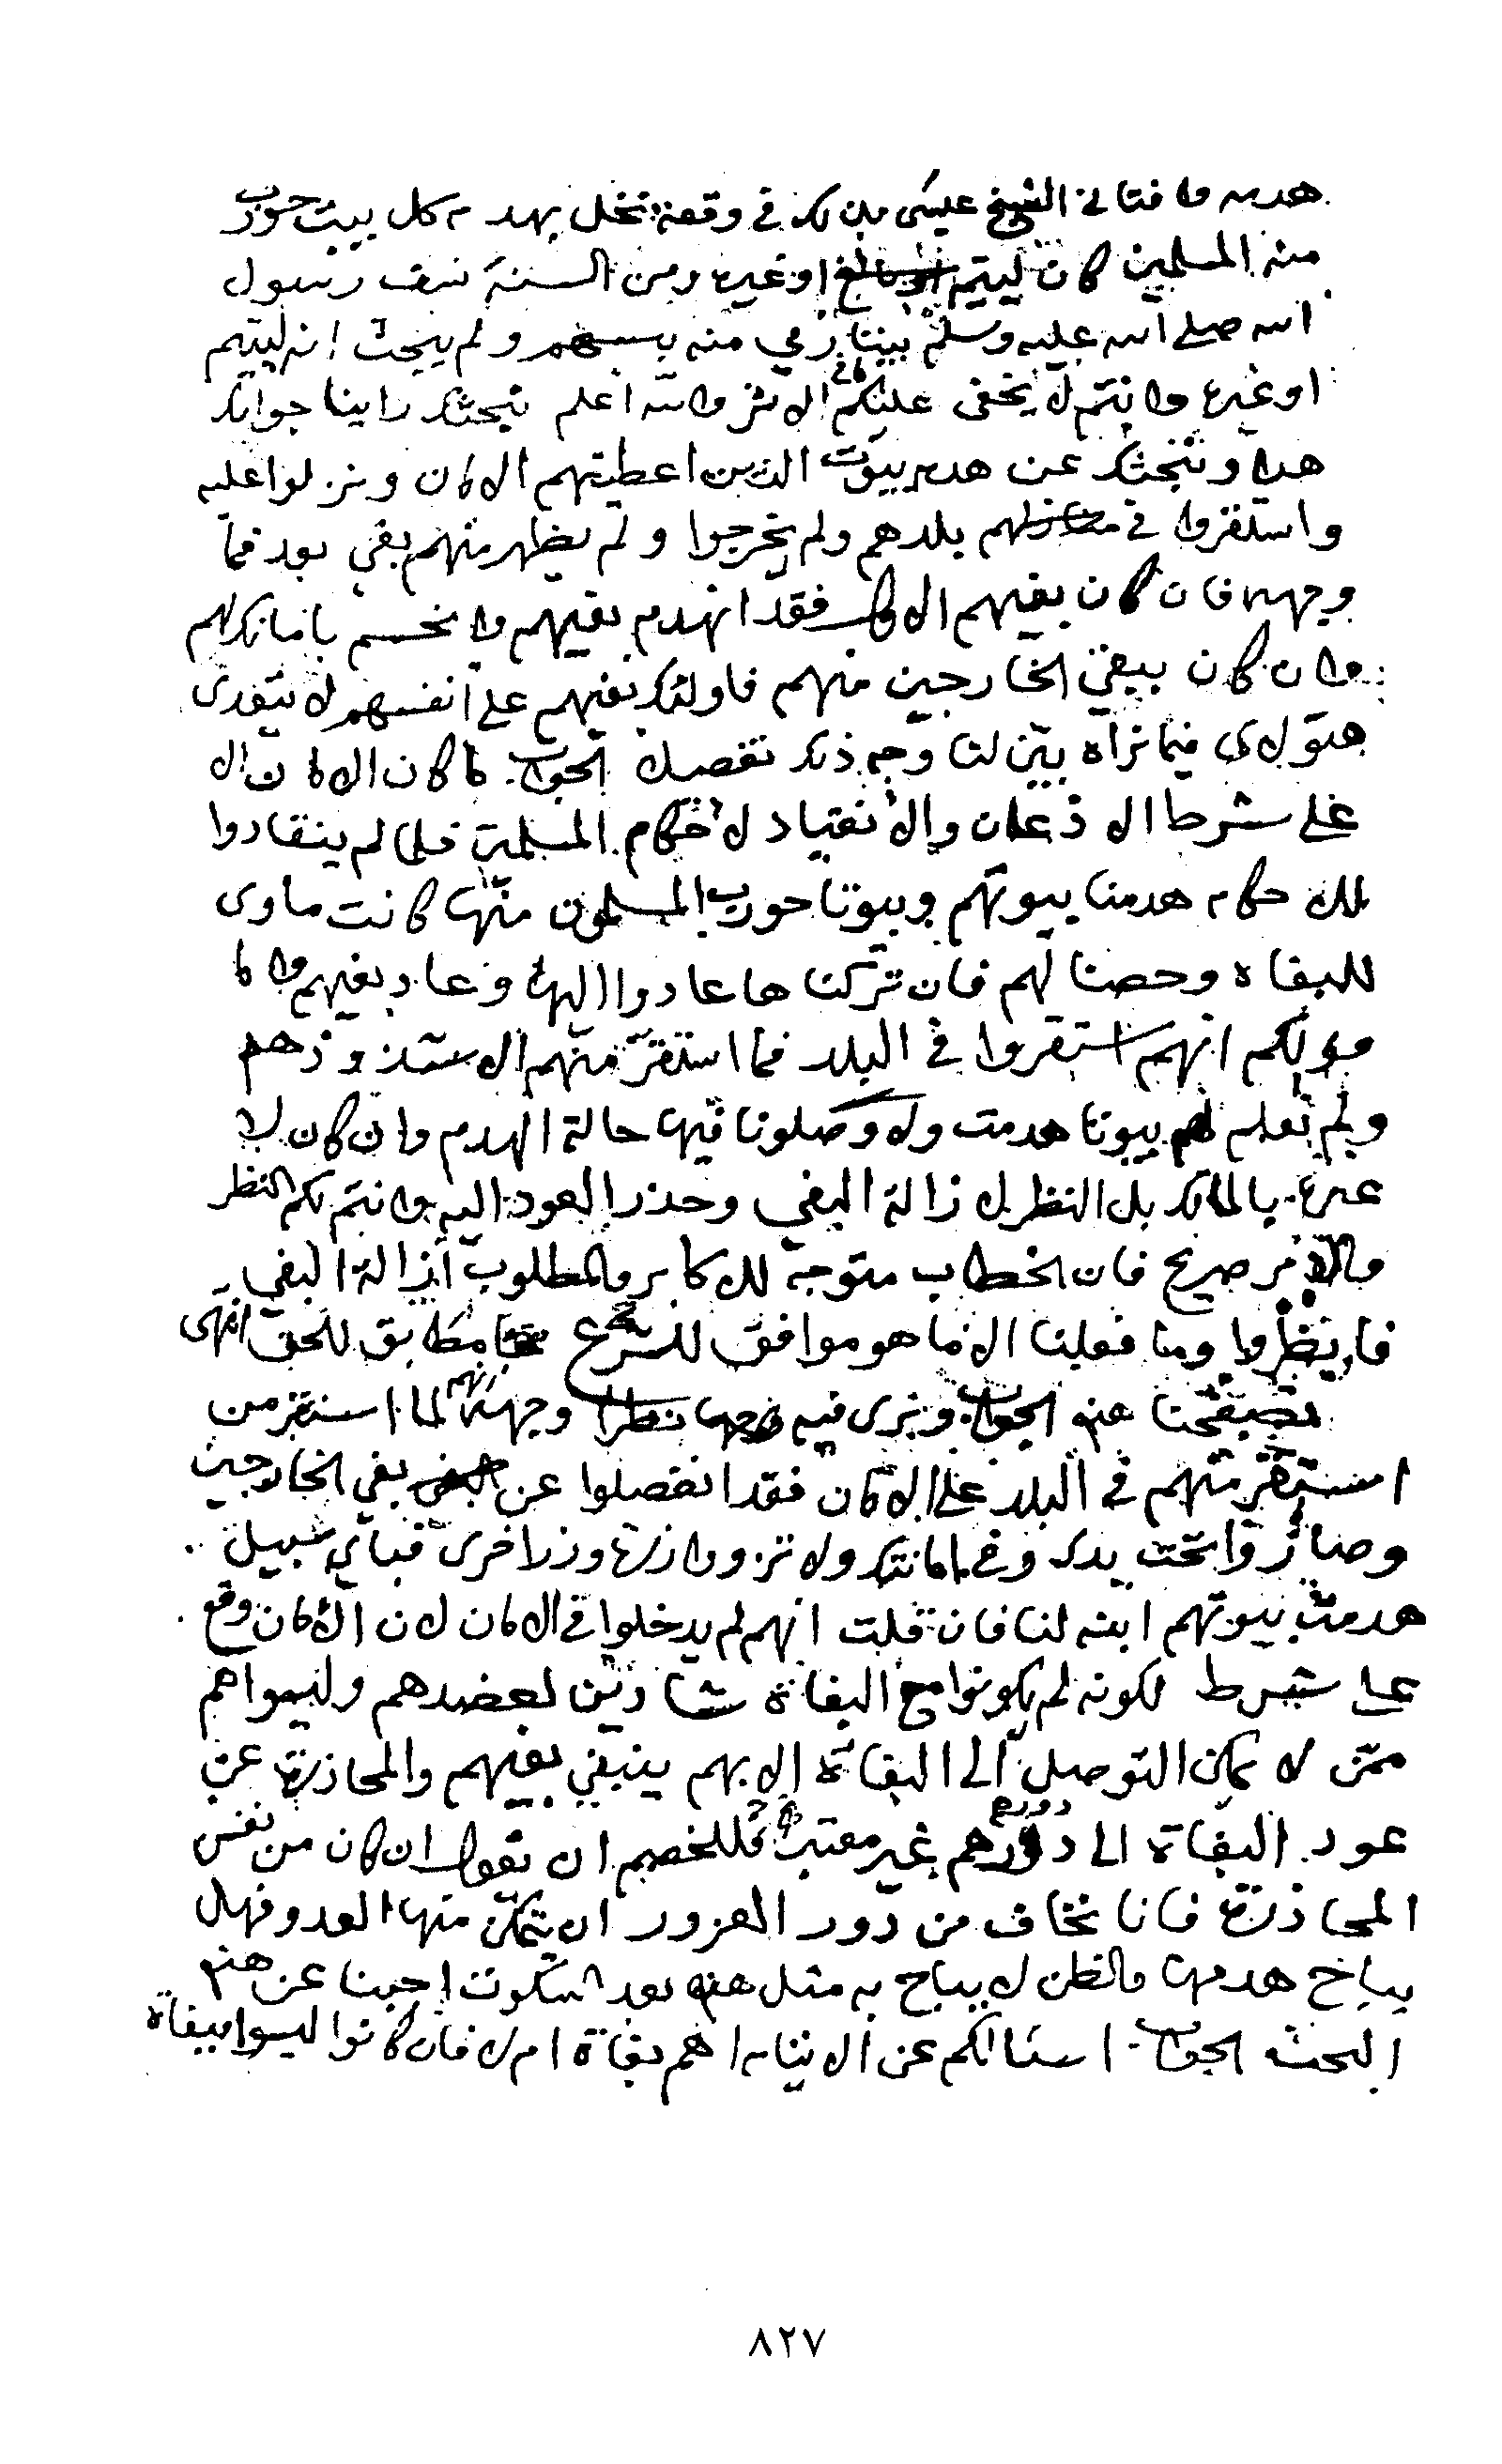 هدمه وافتاني الشيخ عيسى بذلك في وقعة نخل بهدم كل بيت حورب
منه المسلمين كان ليتيم او غيره ومن السنة نسف رسول
الله صلى الله عليه وسلم بيتا رمي منه بسهم ولم يبحث انه ليتيم
او غيره وانتم لا يخفى عليكم ما في الاثر والله اعلم نبحثك راينا جوابك
هذا ونبحثك عن هدم بيوت الذين اعطيتهم الامان ونزلوا عليه
واستقروا في بلدهم ولم يخرجوا ولم يظهر منهم بغي بعد فما
وجهه فان كان بغيهم الاول فقد انهدم بغيهم وانحسم بامانك لهم
وان كان ببغي الخارجين منهم فاولئك بغيهم على انفسهم لا يتعدى
هؤلاء فيما نراه بين لنا وجه ذلك تفضل الجواب لما كان الامان الا
على شرط الاذعان والانقياد لاحكام المسلمين فلما لم ينقادوا
للاحكام هدمنا بيوتهم وبيوتا حورب المسلمون منها كانت ماوى
للبغاة وحصنا لهم فان تركناها عادوا اليها وعاد بغيهم واما
قولكم انهم استقروا في البلد فما استقر منهم الا شذوذهم
ولم نعلم لهم بيوتا هدمت ولا وصلونا فيها حالة الهدم وان كان لا
عبرة بالمالك بل النظر لازالة البغي وحذر العود اليه وانتم لكم النظر
والاثر صريح فان الخطاب متوجه للاكابر والمطلوب ازالة البغي
فانظروا وما فعلنا الا ما هو موافق للشرع مطابق للحق انتهى
تصفحنا هذا الجواب ونرى فيه نظرا وجهه انهم لما استقر من
استقر منهم في البلد على الامان فقد انفصلوا عن بغي الخارجين
وصاروا تحت يدك وفي امانتك ولا تزر وازرة وزر اخرى فباي سبيل
هدمت بيوتهم ابنه لنا فان قلت انهم لم يدخلوا في الامان لان الامان وقع
على شرط لكونه لم يكونوا مع البغاة شادين لعضدهم وليسوا هم
ممن لا يمكن التوصل الى البغاة الا بهم ينبغي بغيهم والمحاذرة عن
عود البغاة الى دورهم غير معتبرة فللخصم ان يقول ان كان من نفس
المحاذرة فانا نخاف من دور العزور ان يتمكن منها العدو فهل
يباح هدمها والظن لا يباح به مثل هذه بعد السكوت اجبنا عن هذه
البحث الجواب اسئالكم عن الابتداء هم بغاة ام لا فان كانوا ليسوا ببغاة
٨٢٧